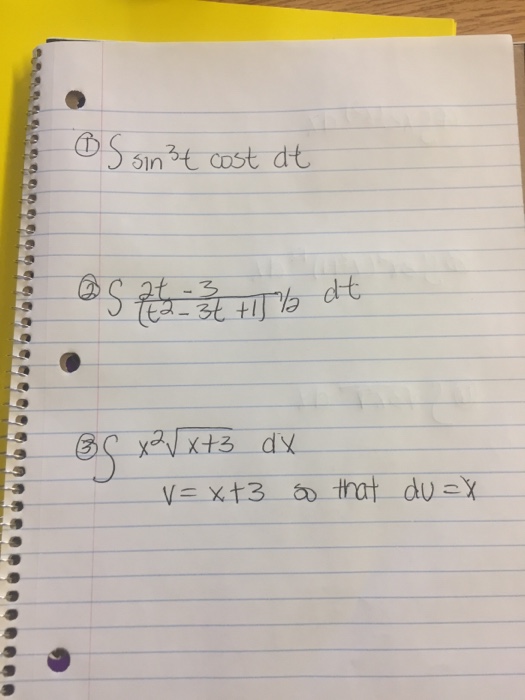 ① ∫ sin³t cost dt
② ∫ 2t - 3 / (t² - 3t + 1)^½ dt
③ ∫ x²√x+3 dx
v = x+3 so that du = x